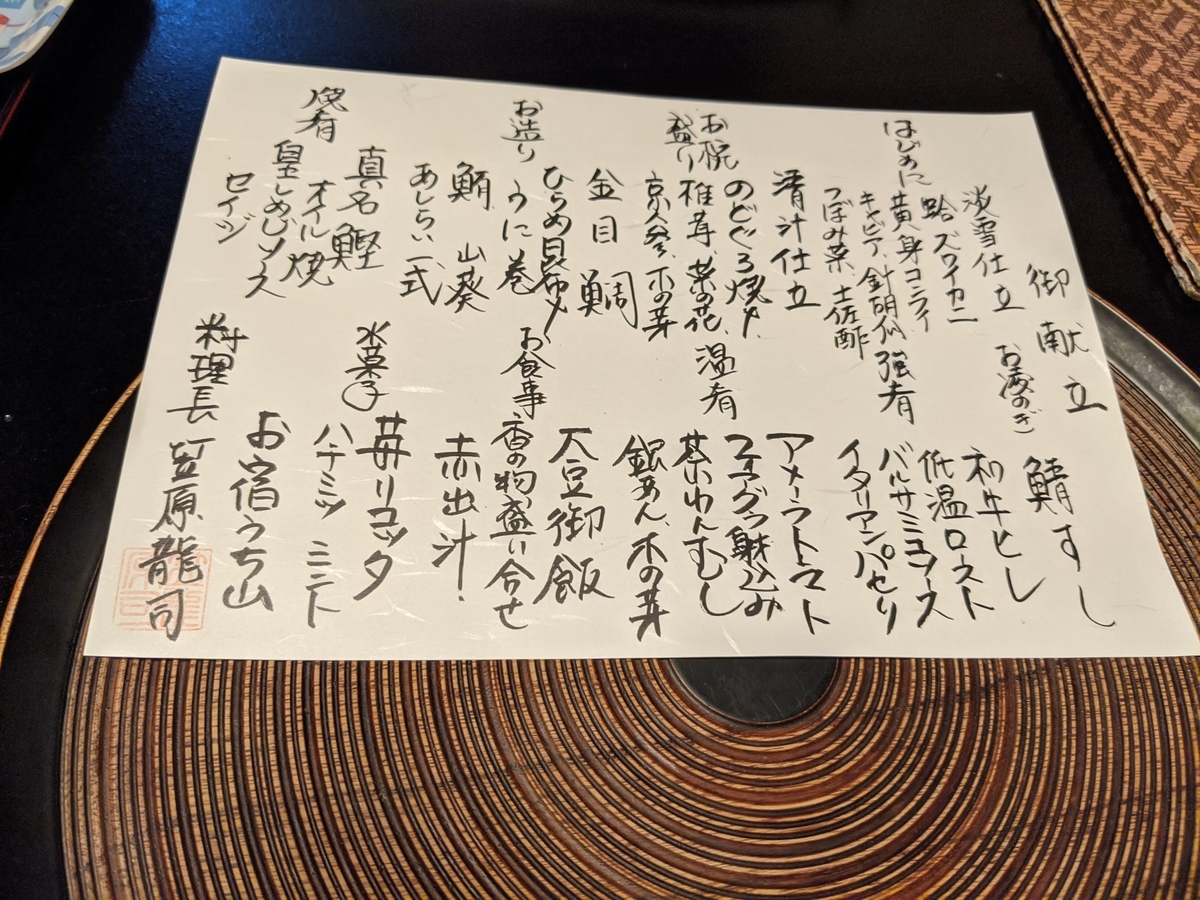 御献立
はじめに
淡雪仕立
蛤、ズワイカニ
黄身コンライ
キャビア、針胡瓜
つぼみ菜 土佐酢
お椀
盛り
清汁仕立
のどぐろ焼〆
椎茸、菜の花
京人参、木の芽
お造り
金目鯛
ひらめ昆布〆
うに巻
鮪 山葵
あしらい一式
焼肴
真名鰹
オイル焼
皇しめじソース
セイジ
お凌のぎ
鯖すし
強肴
和牛ヒレ
低温ロースト
バルサミコソース
イタリアンパセリ
温肴
アメーラトマト
フォアグラ射込み
茶わんむし
銀あん、木の芽
お食事
大豆御飯
香の物盛り合せ
赤出汁
水菓子
苺リコッタ
ハチミツ ミント
お宿うち山
料理長 笠原龍司